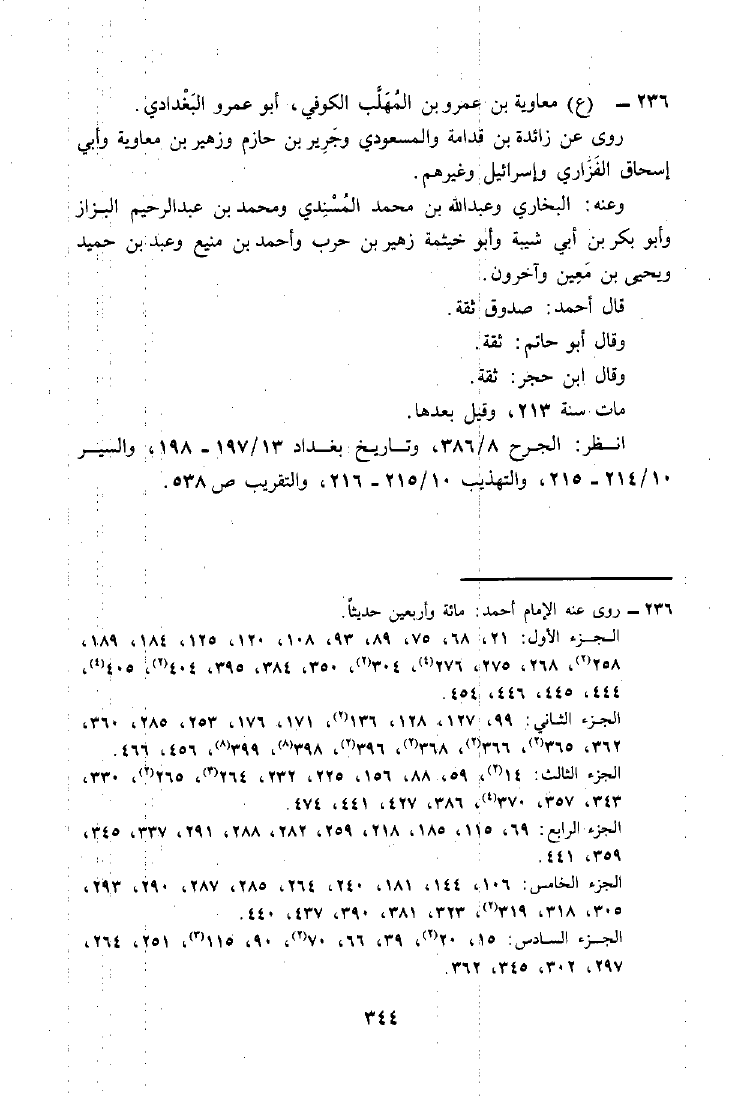 ٢٣٦ ــ (ع) معاوية بن عمرو بن المُهَلَّب الكوفي، أبو عمرو البَغْدادي.
روى عن زائدة بن قدامة والمسعودي وجَرِير بن حازم وزهير بن معاوية وأبي
إسحاق الفَزَاري وإسرائيل وغيرهم.
وعنه: البخاري وعبدالله بن محمد المُسْنِدي ومحمد بن عبدالرحيم البزاز
وأبو بكر بن أبي شيبة وأبو خيثمة زهير بن حرب وأحمد بن منيع وعبد بن حميد
ويحيى بن مَعِين وآخرون.
قال أحمد: صدوق ثقة.
وقال أبو حاتم: ثقة.
وقال ابن حجر: ثقة.
مات سنة ٢١٣، وقيل بعدها.
انظر: الجرح ٣٨٦/٨، وتاريخ بغداد ١٩٧/١٣ ـ ١٩٨، والسير
٢١٤/١٠ ـ ٢١٥، والتهذيب ٢١٥/١٠ ـ ٢١٦، والتقريب ص٥٣٨.
٢٣٦ ــ روى عنه الإمام أحمد: مائة وأربعين حديثاً.
الجزء الأول: ٢١، ٦٨، ٧٥، ٨٩، ٩٣، ١٠٨، ١٢٠، ١٢٥، ١٨٤، ١٨٩،
٢٥٨(٢)، ٢٦٨، ٢٧٥، ٢٧٦(٤)، ٣٠٤(٢)، ٣٥٠، ٣٨٤، ٣٩٥، ٤٠٤(٢)، ٤٠٥(٤)،
٤٤٤، ٤٤٥، ٤٤٦، ٤٥٤.
الجزء الثاني: ٩٩، ١٢٧، ١٢٨، ١٣٦(٢)، ١٧١، ١٧٦، ٢٥٣، ٢٨٥، ٣٦٠،
٣٦٢، ٣٦٥(٢)، ٣٦٦(٢)، ٣٦٨(٢)، ٣٩٦(٢)، ٣٩٨(٨)، ٣٩٩(٨)، ٤٥٦، ٤٦٦.
الجزء الثالث: ١٤(٢)، ٥٩، ٨٨، ١٥٦، ٢٢٥، ٢٣٢، ٢٦٤(٣)، ٢٦٥(٢)، ٣٣٠،
٣٤٣، ٣٥٧، ٣٧٠(٤)، ٣٨٦، ٤٢٧، ٤٤١، ٤٧٤.
الجزء الرابع: ٦٩، ١١٥، ١٨٥، ٢١٨، ٢٥٩، ٢٨٢، ٢٨٨، ٢٩١، ٣٣٧، ٣٤٥،
٣٥٩، ٤٤١.
الجزء الخامس: ١٠٦، ١٤٤، ١٨١، ٢٤٠، ٢٦٤، ٢٨٥، ٢٨٧، ٢٩٠، ٢٩٣،
٣٠٥، ٣١٨، ٣١٩(٢)، ٣٢٣، ٣٨١، ٣٩٠، ٤٣٧، ٤٤٠.
الجزء السادس: ١٥، ٢٠(٢)، ٣٩، ٦٦، ٧٠(٢)، ٩٠، ١١٥(٣)، ٢٥١، ٢٦٤،
٢٩٧، ٣٠٢، ٣٤٥، ٣٦٢.
٣٤٤